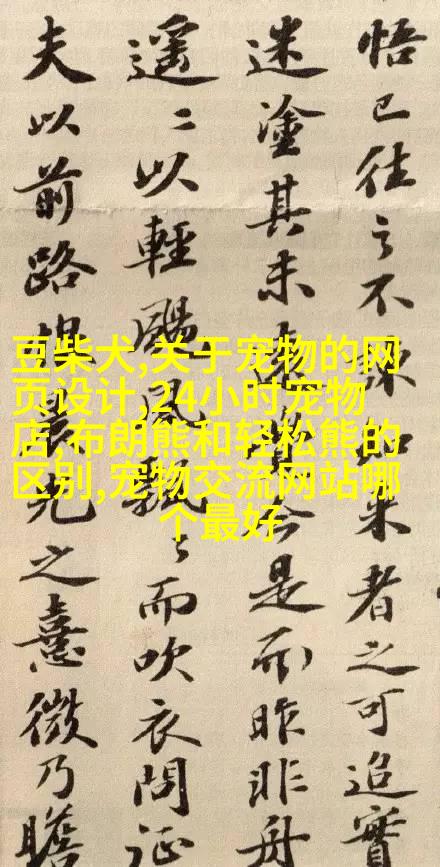 悟已往之不諫知来者之可追實
迷塗其未遠覺今是而昨非舟
遥〻以輕颺風飄〻而吹衣問征
夫以前路恨晨光之熹微乃瞻
豆柴犬,关于宠物的网
页设计,24小时宠物
店,布朗熊和轻松熊的
区别,宠物交流网站哪
个最好